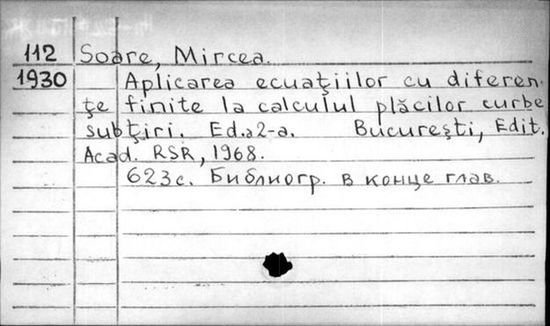 112 Soare, Mircea.
1930 Aplicarea ecuaţiilor cu diferen-
ţe finite la calculul plăcilor curbe
subţiri. Ed.a2-a. Bucureşti, Edit.
Acad. RSR, 1968.
623c. Библиогр. в конце глав.